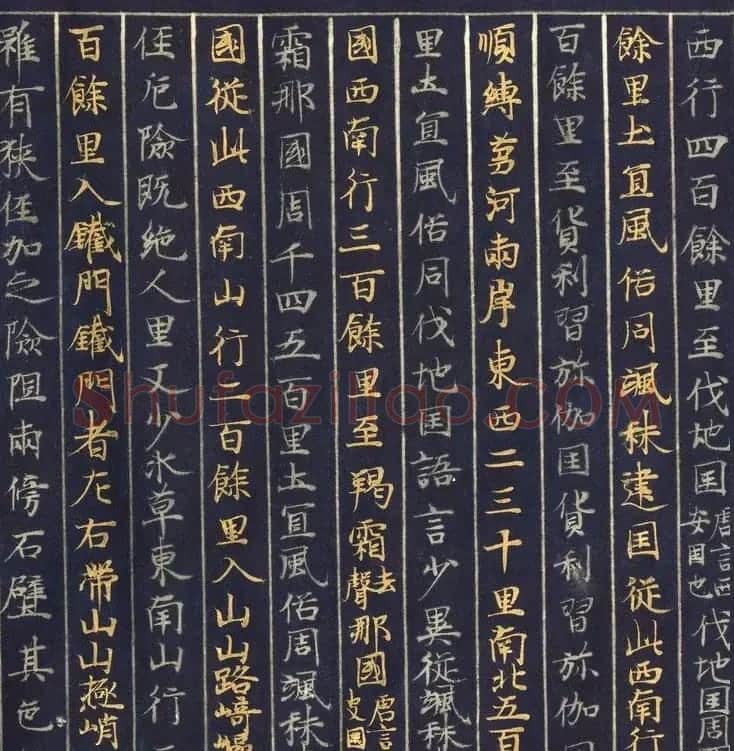 西行四百餘里至伐地囯唐言西安囯也伐地囯周
餘里土宜風俗同颯秣建囯従此西南行
百餘里至貨利習弥伽囯貨利習弥伽
順縛芻河兩岸東西二三十里南北五百
里土宜風俗同伐地囯語言少異従颯秣
國西南行三百餘里至羯霜去聲那國唐言史囯
霜那國周千四五百里土宜風俗周颯秣
國従此西南山行二百餘里入山山路崎嶇
径危險既絶人里又少水草東南山行
百餘里入鐵門鐵門者左右帶山山極峭
雖有狹径加之險阻兩傍石壁其色
Shufaziliao.COM